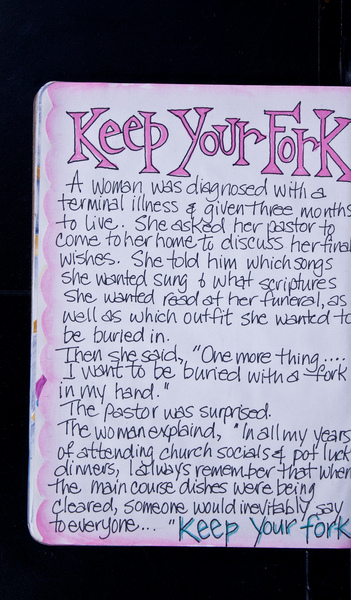 Keep Your Fork
A woman was diagnosed with a
terminal illness & given three months
to live. She asked her pastor to
come to her home to discuss her final
wishes. She told him which songs
she wanted sung & what scriptures
she wanted read at her funeral, as
well as which outfit she wanted to
be buried in.
Then she said, "One more thing....
I want to be buried with a fork
in my hand."
The pastor was surprised.
The woman explaind, "In all my years
of attending church socials & pot luck
dinners, I always remember that when
the main course dishes were being
cleared, someone would inevitably say
to everyone... "Keep your fork